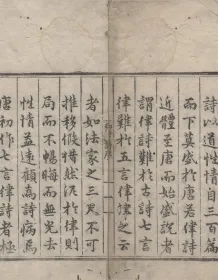 詩以道性情自三百篇
而下莫盛於唐若律詩
近體至唐而始盛說者
謂律詩難於古詩七言
律難於五言律律之云
者如法家之三尺不可
推移假借然泥於律則
局而不暢畧而無完去
性情益遠顧為詩病焉
唐初作七言律詩者極